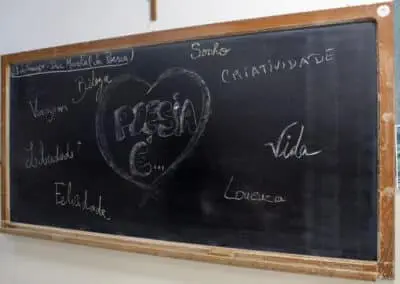 Dia Mundial da Poesia!
Sonho
Beleza
CRIATIVIDADE
Viagem
POESIA
É...
Vida
Liberdade
Loucura
Felicidade